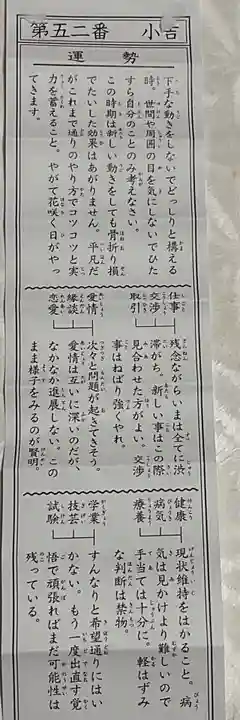 第五二番 小吉
運勢
下手な動きをしないでどっしりと構える
時。世間や周囲の目を気にしないでひた
すら自分のことのみ考えなさい。
この時期は新しい動きをしても骨折り損
でたいした効果はあがりません。平凡だ
がこれまで通りのやり方でコツコツと実
力を蓄えること。やがて花咲く日がやっ
てきます。
仕事
交渉
取引
残念ながらいまは全てに渋
滞がち。新しい事はこの際
見合わせた方がよい。交渉
事はねばり強くやれ。
愛情
縁談
恋愛
次々と問題が起きてきそう。
愛情は互いに深いのだが、
なかなか進展しない。この
まま様子をみるのが賢明。
健康
病気
療養
現状維持をはかること。病
気は見かけより難しいので
手当ては十分に。軽はずみ
な判断は禁物。
学業
技芸
試験
すんなりと希望通りにはい
かない。もう一度出直す覚
悟で頑張ればまだ可能性は
残っている。